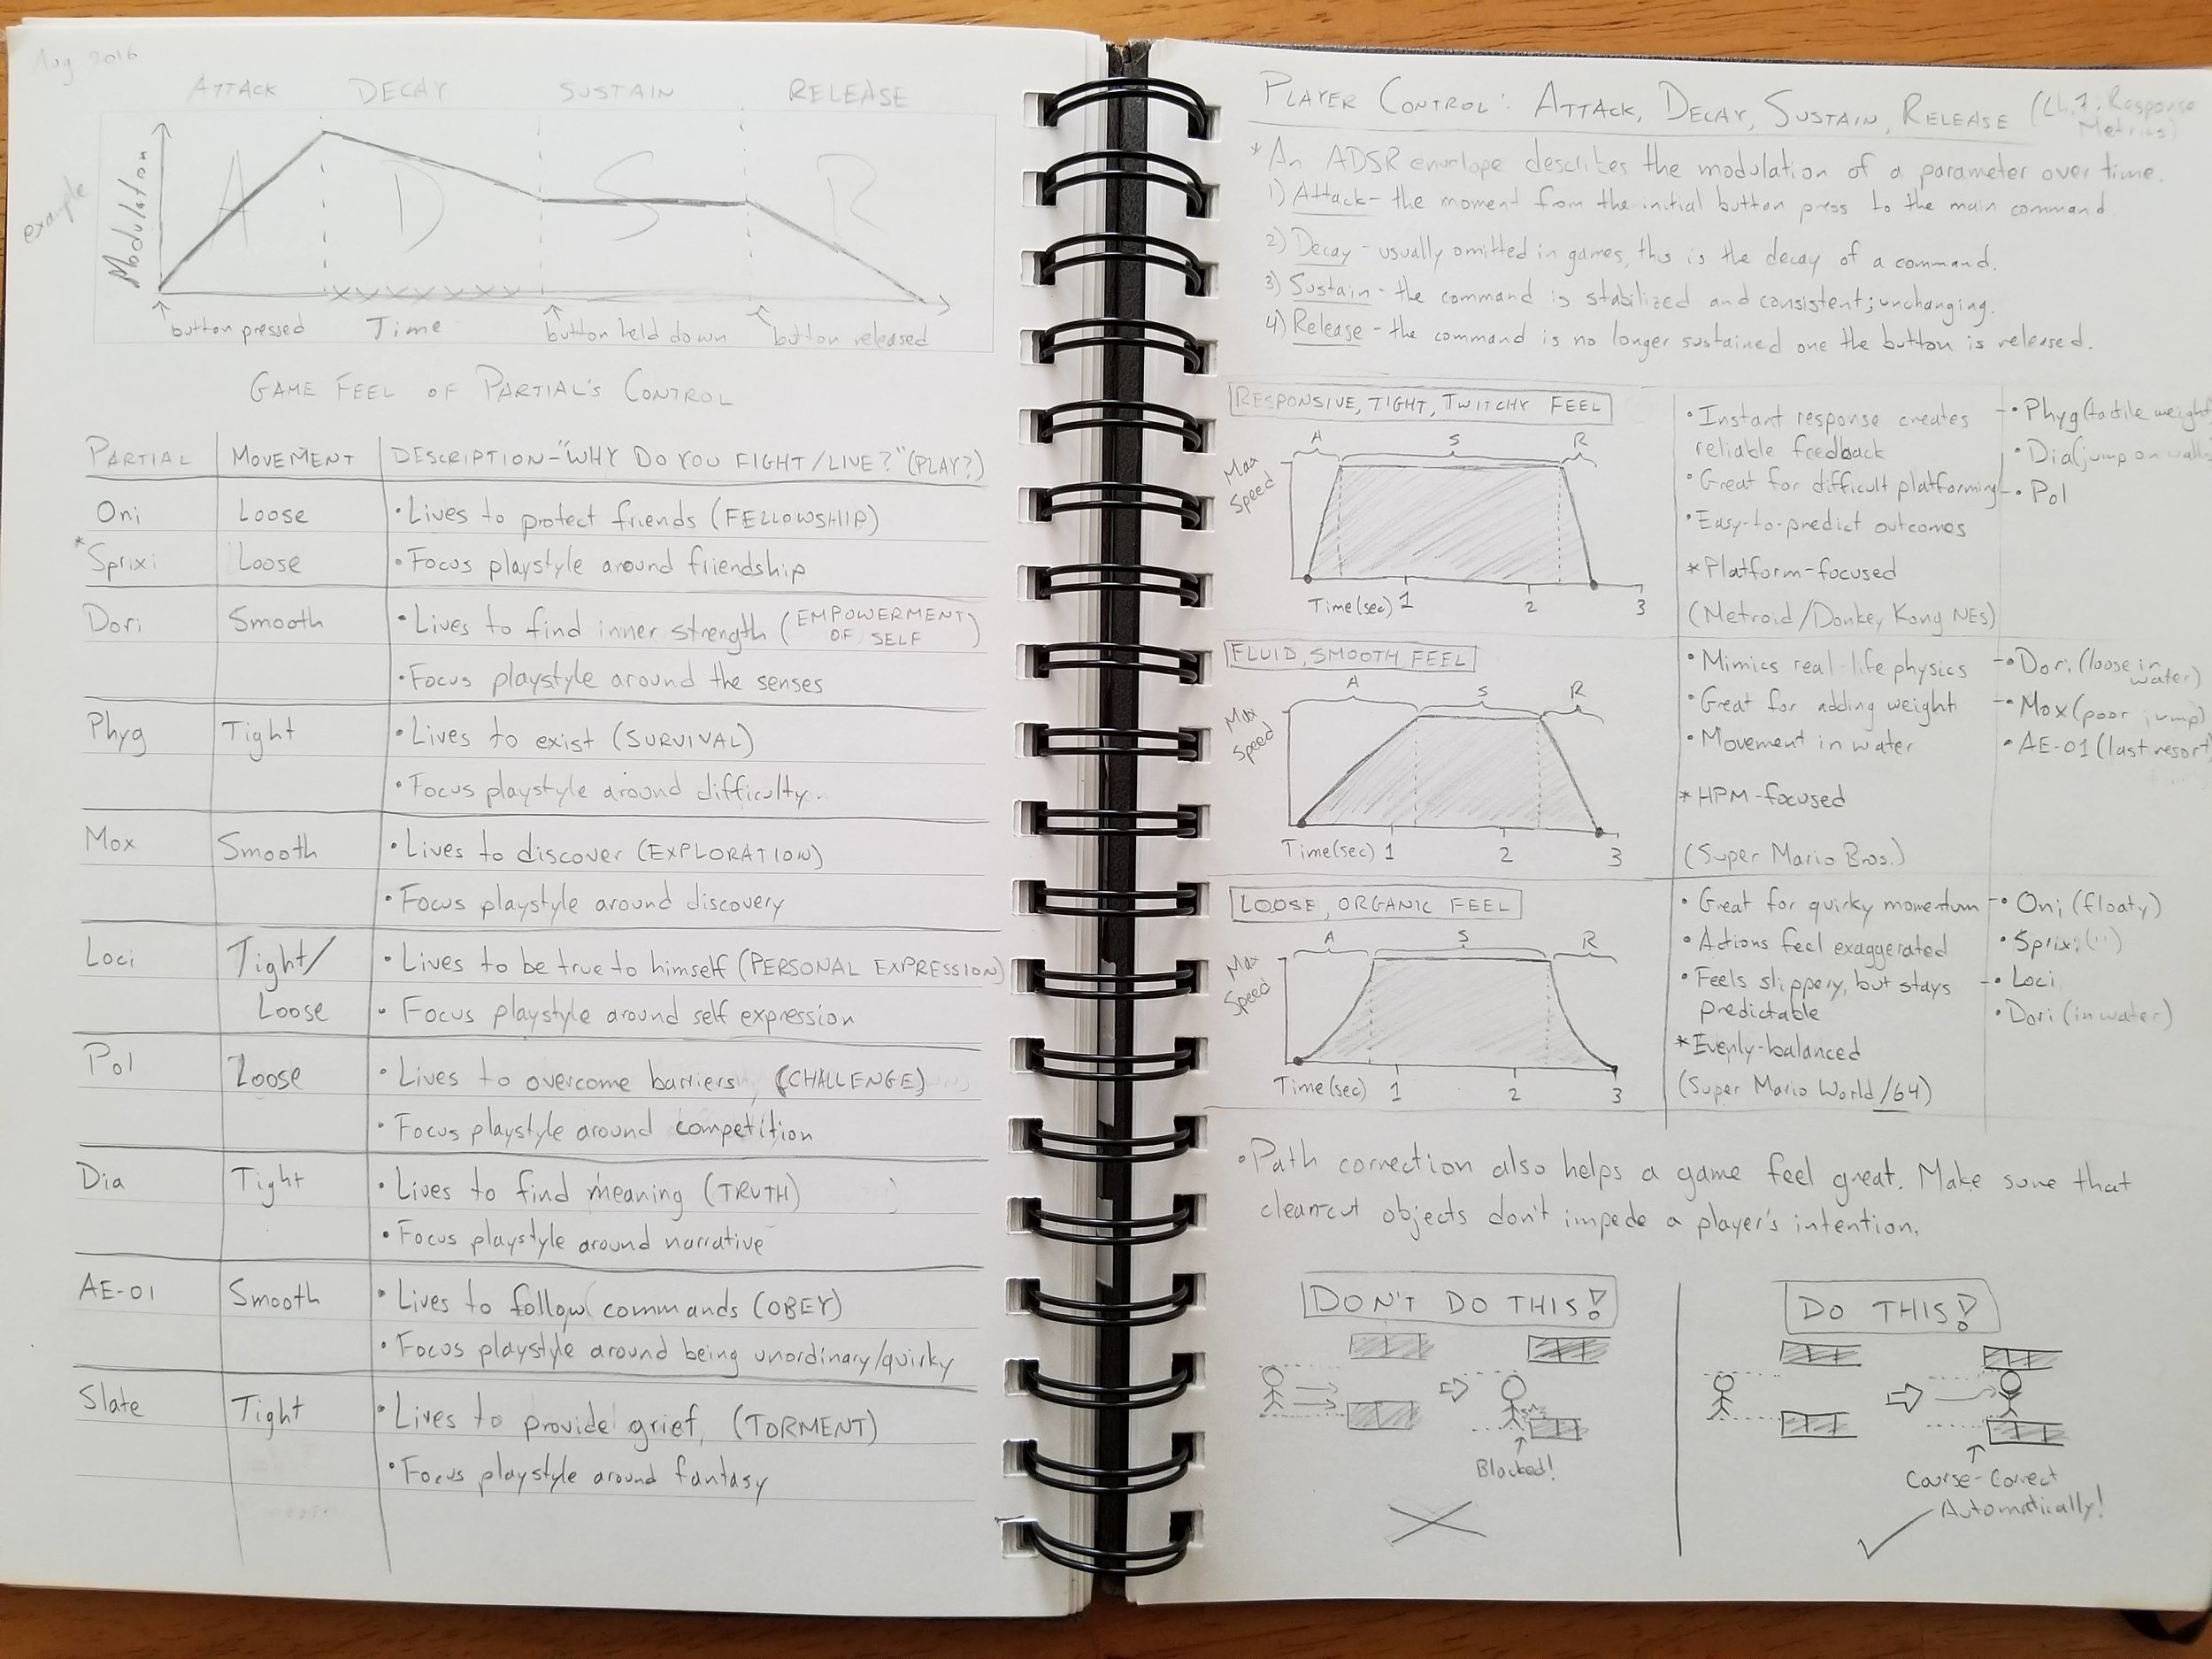 Aug 2016
ATTACK DECAY SUSTAIN RELEASE
example
Modulation
A D S R
button pressed Time button held down button released
GAME FEEL OF PARTIAL'S CONTROL
PARTIAL MOVEMENT DESCRIPTION-"WHY DO YOU FIGHT/LIVE?"(PLAY?)
Oni Loose •Lives to protect friends (FELLOWSHIP)
*Sprixi Loose •Focus playstyle around friendship
Dori Smooth •Lives to find inner strength (EMPOWERMENT
OF SELF)
•Focus playstyle around the senses
Phyg Tight •Lives to exist (SURVIVAL)
•Focus playstyle around difficulty.
Mox Smooth •Lives to discover (EXPLORATION)
•Focus playstyle around discovery
Loci Tight/ •Lives to be true to himself (PERSONAL EXPRESSION)
Loose •Focus playstyle around self expression
Pol Loose •Lives to overcome barriers, (CHALLENGE)
•Focus playstyle around competition
Dia Tight •Lives to find meaning (TRUTH)
•Focus playstyle around narrative
AE-01 Smooth •Lives to follow commands (OBEY)
•Focus playstyle around being unordinary/quirky
Slate Tight •Lives to provide grief, (TORMENT)
•Focus playstyle around fantasy
PLAYER CONTROL: ATTACK, DECAY, SUSTAIN, RELEASE (Ch.1: Response
Metrics)
*An ADSR envelope describes the modulation of a parameter over time.
1) Attack- the moment from the initial button press to the main command.
2) Decay - usually omitted in games, this is the decay of a command.
3) Sustain - the command is stabilized and consistent; unchanging.
4) Release - the command is no longer sustained one the button is released.
RESPONSIVE, TIGHT, TWITCHY FEEL
A S R
Max
Speed
Time(sec) 1 2 3
•Instant response creates
reliable feedback
•Great for difficult platforming
•Easy-to-predict outcomes
*Platform-focused
(Metroid/Donkey Kong NES)
•Phyg (tactile weight
•Dia (jump on walls
•Pol
FLUID, SMOOTH FEEL
A S R
Max
Speed
Time(sec) 1 2 3
•Mimics real-life physics
•Great for adding weight
•Movement in water
*HPM-focused
(Super Mario Bros.)
•Dori (loose in
water)
•Mox (poor jump)
•AE-01 (last resort)
LOOSE, ORGANIC FEEL
A S R
Max
Speed
Time(sec) 1 2 3
•Great for quirky momentum
•Actions feel exaggerated
•Feels slippery, but stays
predictable
*Evenly-balanced
(Super Mario World/64)
•Oni (floaty)
•Sprixi (")
•Loci
•Dori (in water)
•Path correction also helps a game feel great. Make sure that
clean-cut objects don't impede a player's intention.
DON'T DO THIS!
Blocked!
DO THIS!
Course-Correct
Automatically!